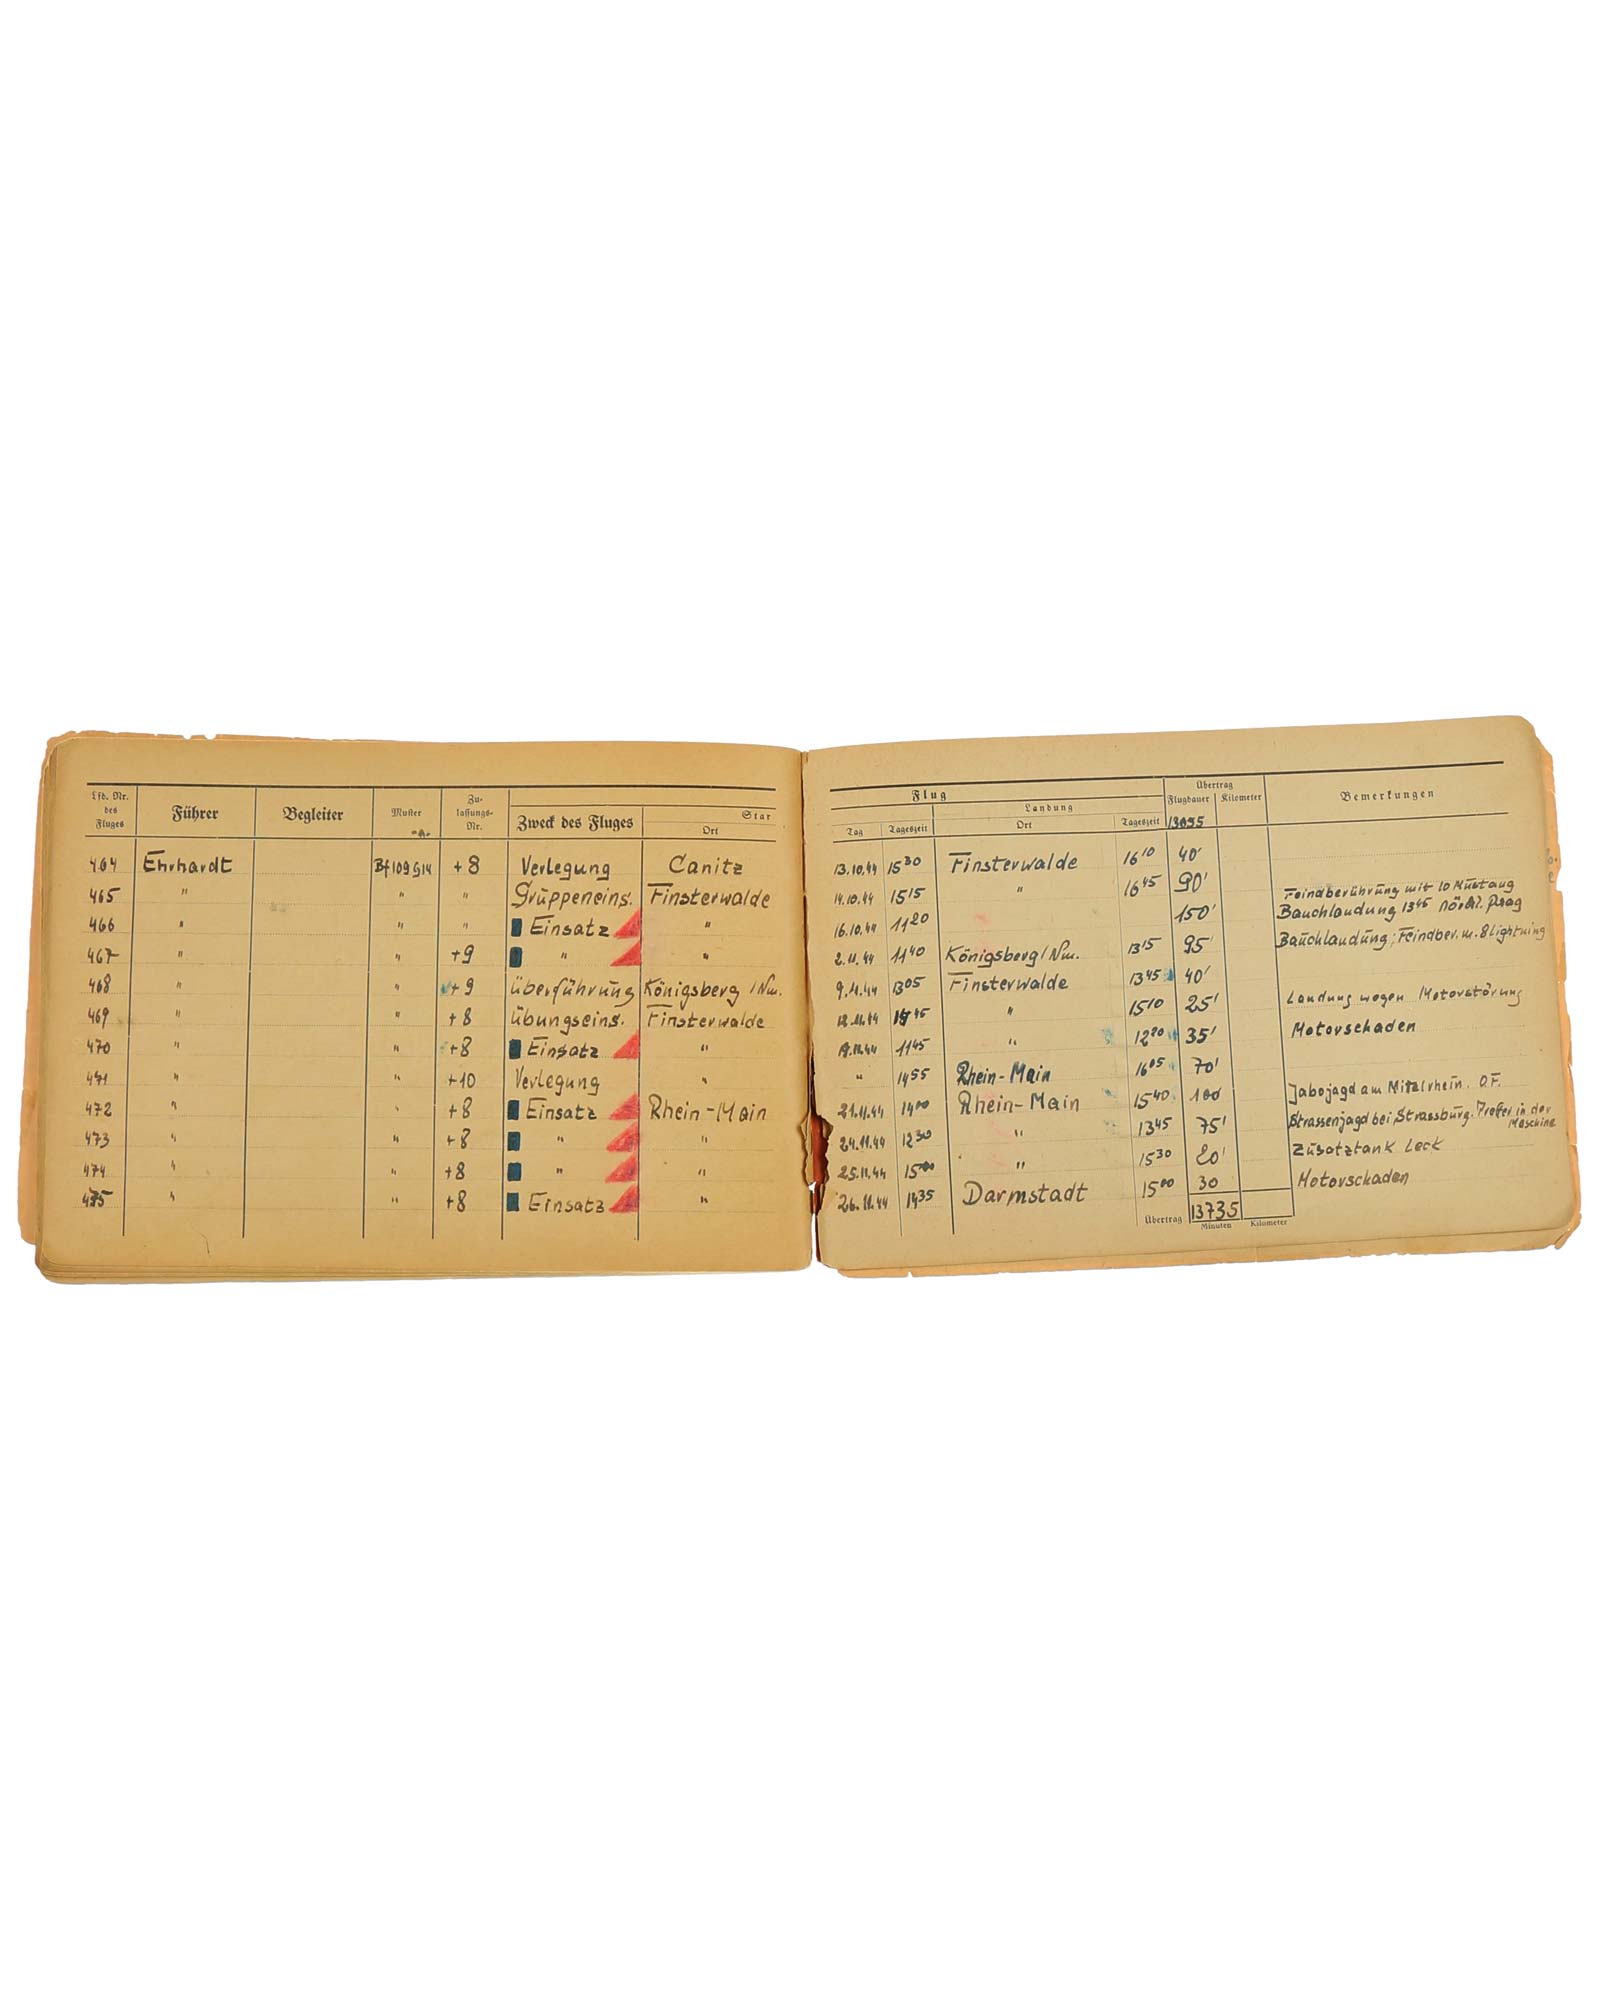 Lfd. Nr. des Fluges Führer Begleiter Muster Zulassungs-Nr. Zweck des Fluges Star Ort
464 Ehrhardt Bf 109 G14 +8 Verlegung Canitz
465 " " " Gruppeneins. Finsterwalde
466 " " " Einsatz "
467 " " +9 " "
468 " " +9 Überführung Königsberg /Nm.
469 " " +8 Übungseins. Finsterwalde
470 " " +8 Einsatz "
471 " " +10 Verlegung "
472 " " +8 Einsatz Rhein-Main
473 " " +8 " "
474 " " +8 " "
475 " " +8 Einsatz "
Flug Übertrag
Landung Flugdauer Kilometer Bemerkungen
Tag Tageszeit Ort Tageszeit 13095
13.10.44 15 30 Finsterwalde 16 10 40'
14.10.44 15 15 " 16 45 90'
16.10.44 11 20 150' Feindberührung mit 10 Mustang
Bauchlandung 13 45 nördl. Prag
2.11.44 11 40 Königsberg/Nm. 13 15 95' Bauchlandung; Feindber. m. 8 Lightning
9.11.44 13 05 Finsterwalde 13 45 40'
45 " 15 10 25' Landung wegen Motorstörung
11 45 " 12 20 35' Motorschaden
" 14 55 Rhein-Main 16 05 70'
21.11.44 14 00 Rhein-Main 15 40 100 Jabojagd am Mittelrhein. O.F.
24.11.44 12 30 " 13 45 75' Strassenjagd bei Strassburg. Treffer in der
Maschine
25.11.44 15 " 15 30 20' Zusatztank leck
26.11.44 14 35 Darmstadt 15 00 30 Motorschaden
Übertrag 13735
Minuten Kilometer